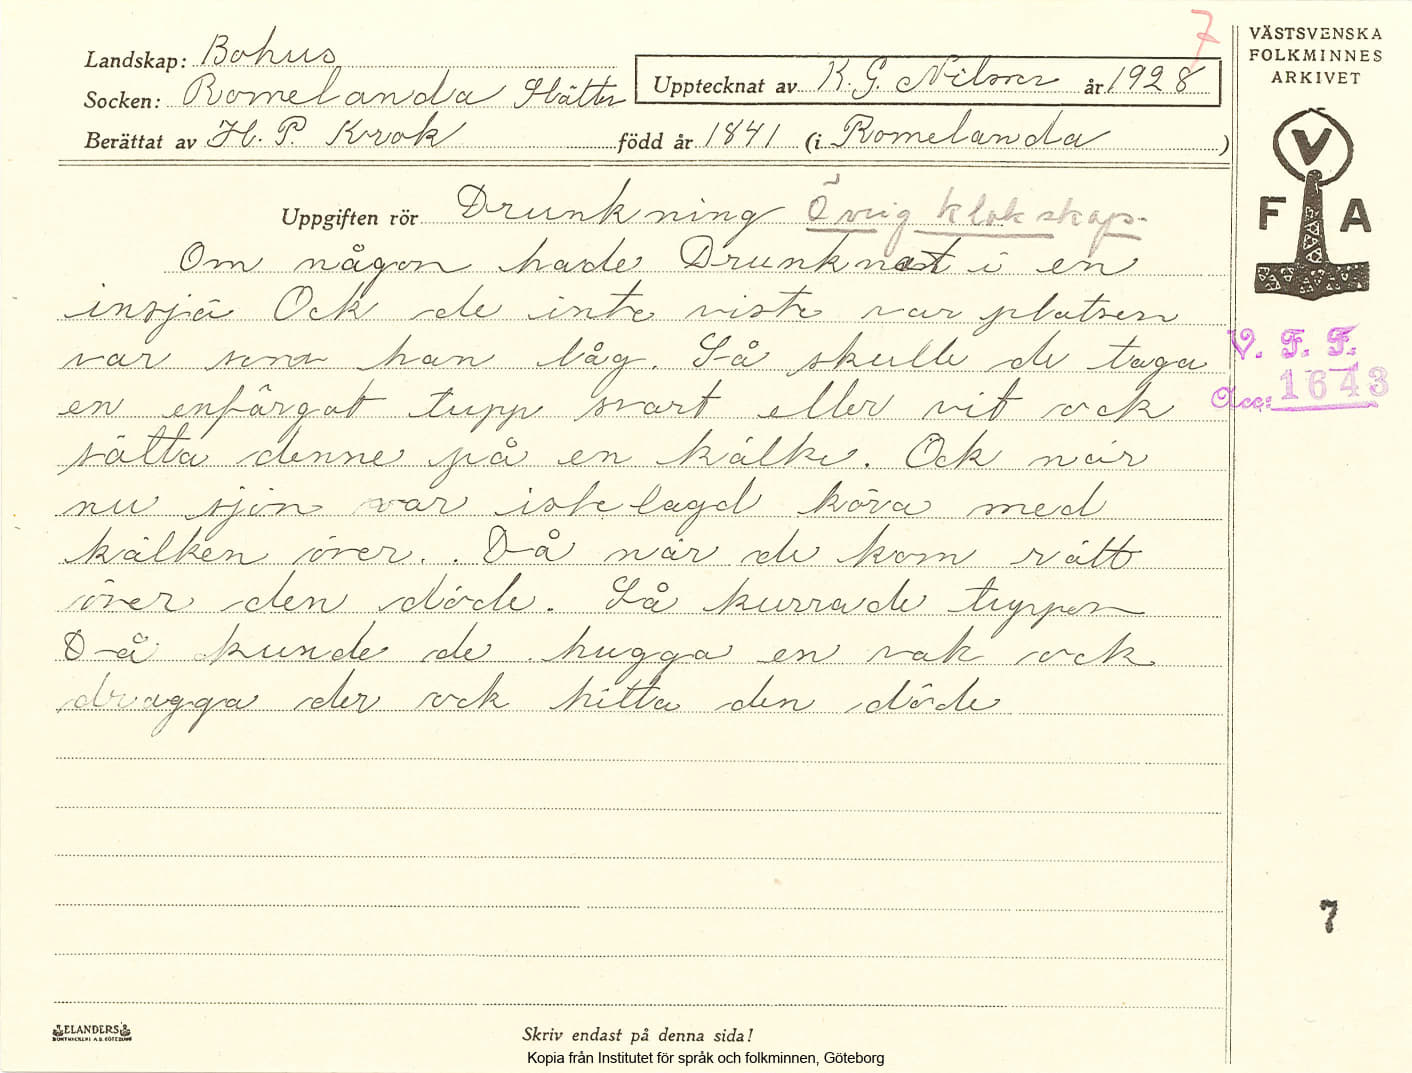 7
Landskap: Bohus
Socken: Romelanda Slätten
Upptecknat av K. G. Nilson år 1928
Berättat av H. P. Krok född år 1841 (i Romelanda )
VÄSTSVENSKA
FOLKMINNES
ARKIVET
V
F A
Uppgiften rör Drunkning Övrig klokskap.
Om någon hade Drunknat i en
insjö Ock de inte viste var platsen
var som han låg. Så skulle de taga
en enfärgat tupp svart eller vit ock
sätta denne på en kälke. Ock när
nu sjön var istelagd köra med
kälken över. Då när de kom rätt
över den döde. Så kurrade tuppen
Då kunde de hugga en vak ock
dragga der ock hitta den döde
V. F. F.
Acc: 1643
7
ELANDERS
Skriv endast på denna sida!
Kopia från Institutet för språk och folkminnen, Göteborg